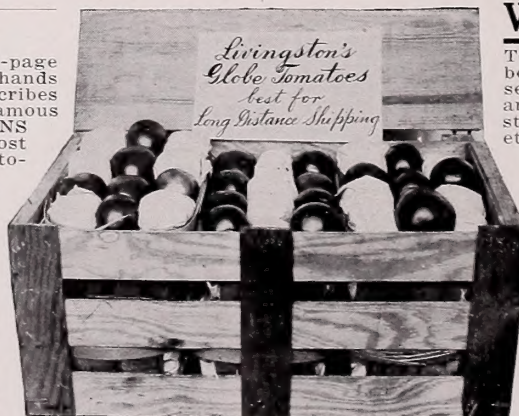 -page
hands
cribes
amous
NS
ost
to-
Livingston's
Globe Tomatoes
best for
Long Distance Shipping
W
T
be
se
au
st
et